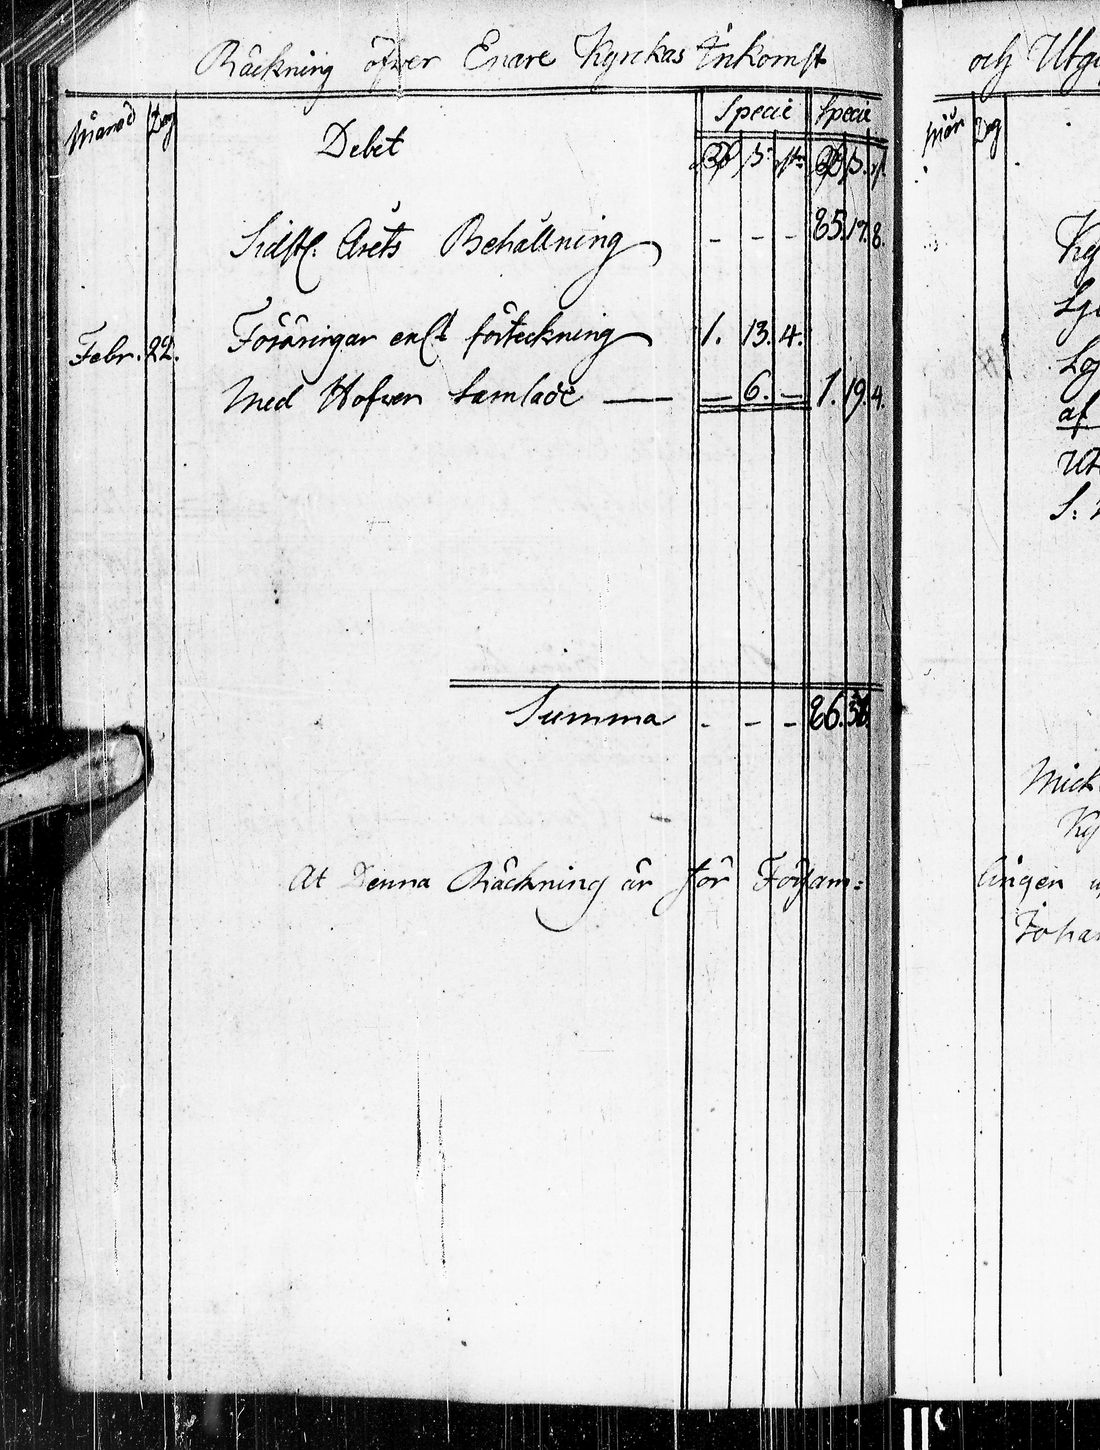 Räckning öfwer Enare Kyrckas Inkomst
Månad Dag Debet Specie Specie
Rd ß: rst: Rd ß. r.
Sidstl. Årets Behållning - - - 85. 17. 8.
Febr. 22. Föräringar enl:t förteckning 1. 13. 4.
Med Hofwen Samlade — — 6. — 1. 19. 4.
Summa - - - 86. 37.
At Denna Räckning är för Församl:
och Utgi
Mån Dag
Ky
af
S:
Mick
Ky
lingen u
Johan